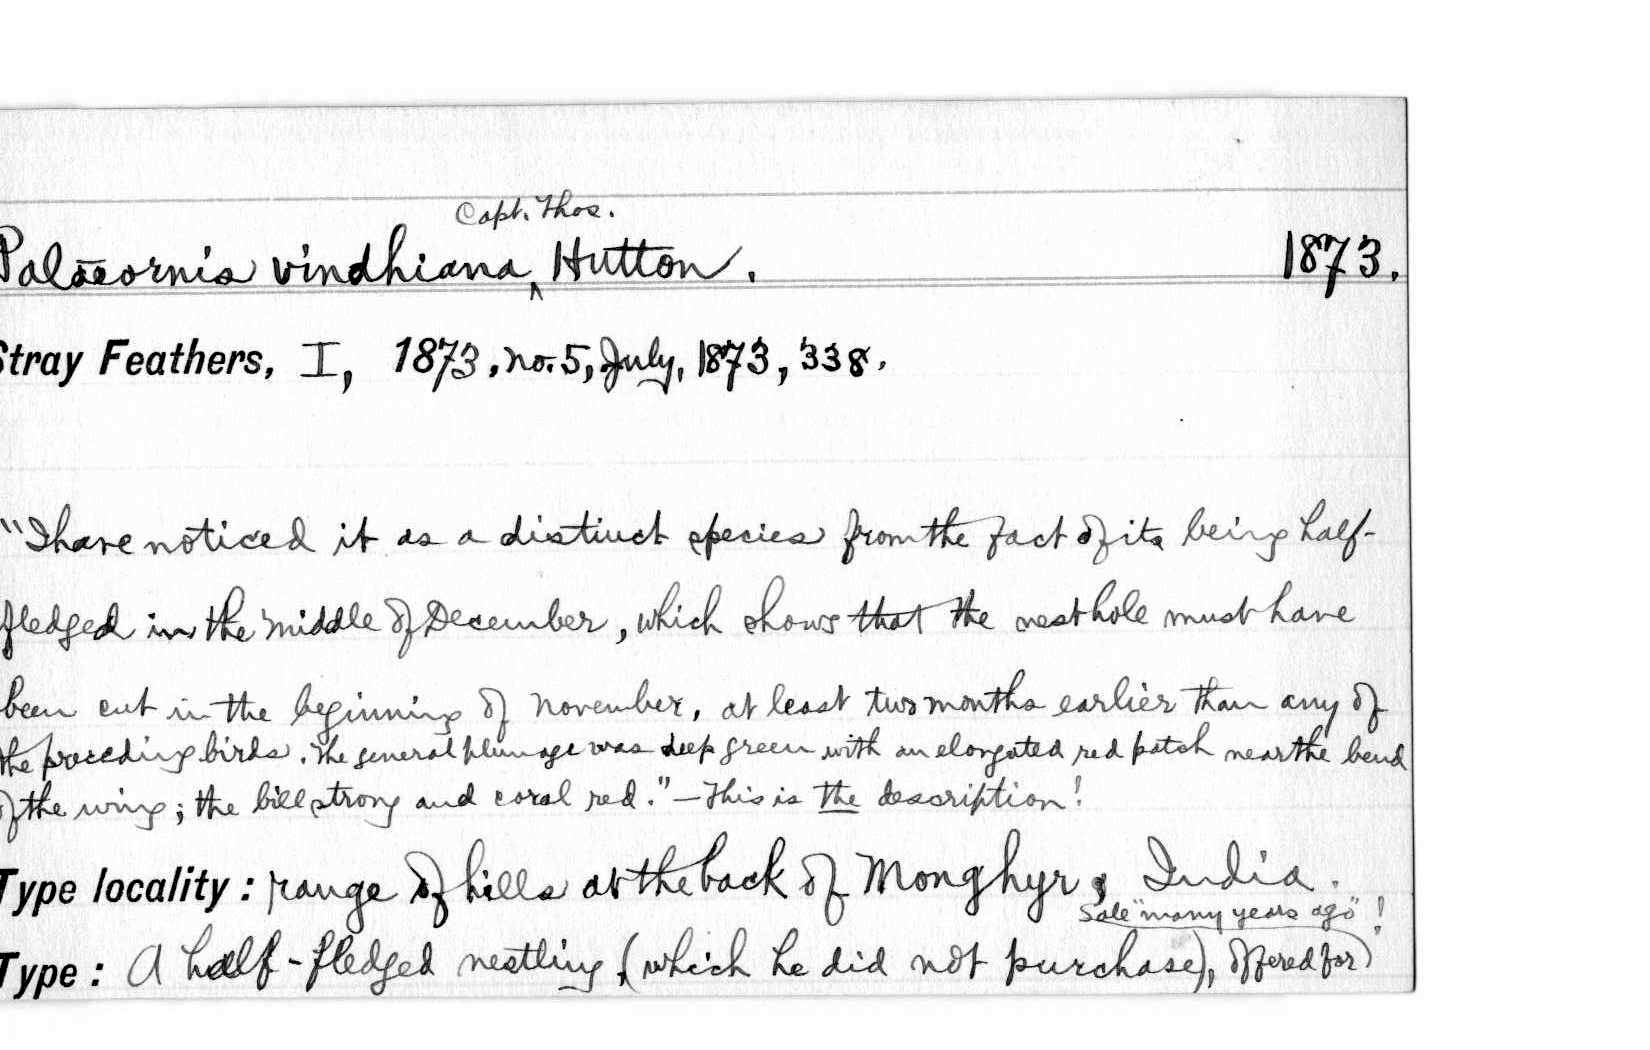 Capt. Thos.
Palæornis vindhiana ^ Hutton. 1873.
Stray Feathers, I, 1873, no. 5, July, 1873, 338.
"I have noticed it as a distinct species from the fact of its being half-
fledged in the middle of December, which shows that the nest hole must have
been cut in the beginning of November, at least two months earlier than any of
the preceding birds. The general plumage was deep green with an elongated red patch near the bend
of the wing; the bill strong and coral red." — This is the description!
Type locality: range of hills at the back of Monghyr, India.
Sale "many years ago"!
Type: A half-fledged nestling, (which he did not purchase), offered for